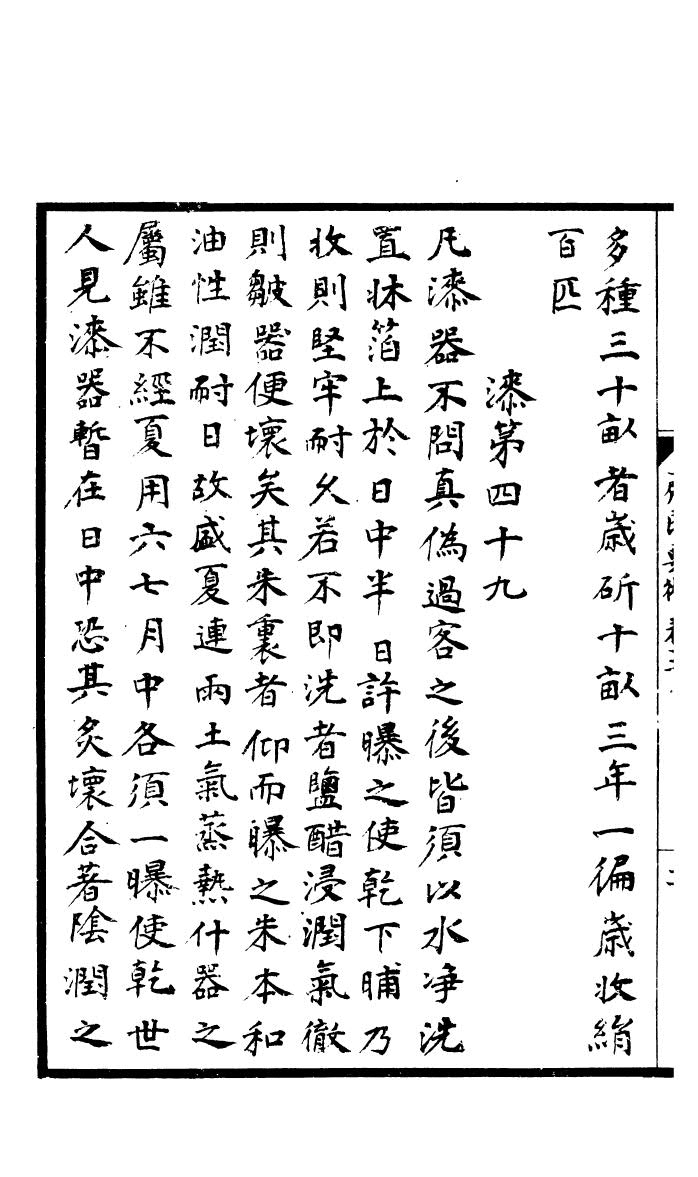 多種三十畝者歳斫十畝三年一徧歳收絹
百匹
漆第四十九
凡漆器不問真偽過客之後皆須以水净洗
置牀箔上於日中半日許曝之使乾下晡乃
收則堅牢耐久若不即洗者鹽醋浸潤氣徹
則皺器便壞矣其朱裏者仰而曝之朱本和
油性潤耐日故盛夏連雨土氣蒸熱什器之
屬雖不經夏用六七月中各須一曝使乾世
人見漆器暫在日中恐其炙壞合著陰潤之